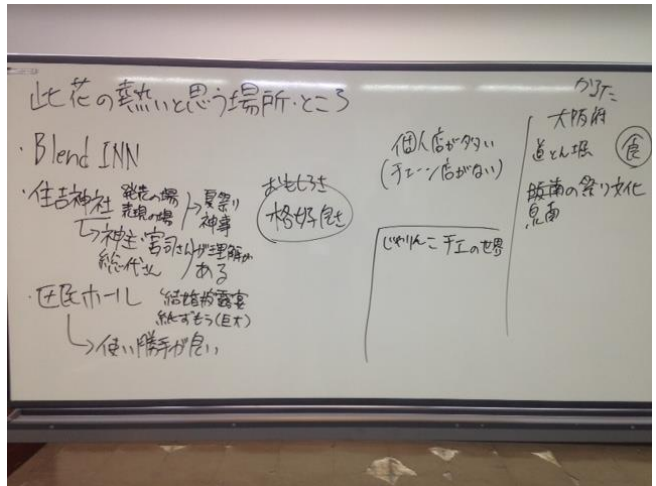 此花の熱いと思う場所・ところ
・Blend INN
・住吉神社 発表の場 表現の場 → 夏祭り 神事
↳神主・宮司さんが理解がある
総代さん
・区民ホール 結婚披露宴
紙ずもう(巨大)
↳使い勝手が良い
おもしろさ
格好良さ
個人店が多い
(チェーン店がない)
じゃりんこチエの世界
かるた
大阪府
道とん堀 食
阪南の祭り文化
泉南